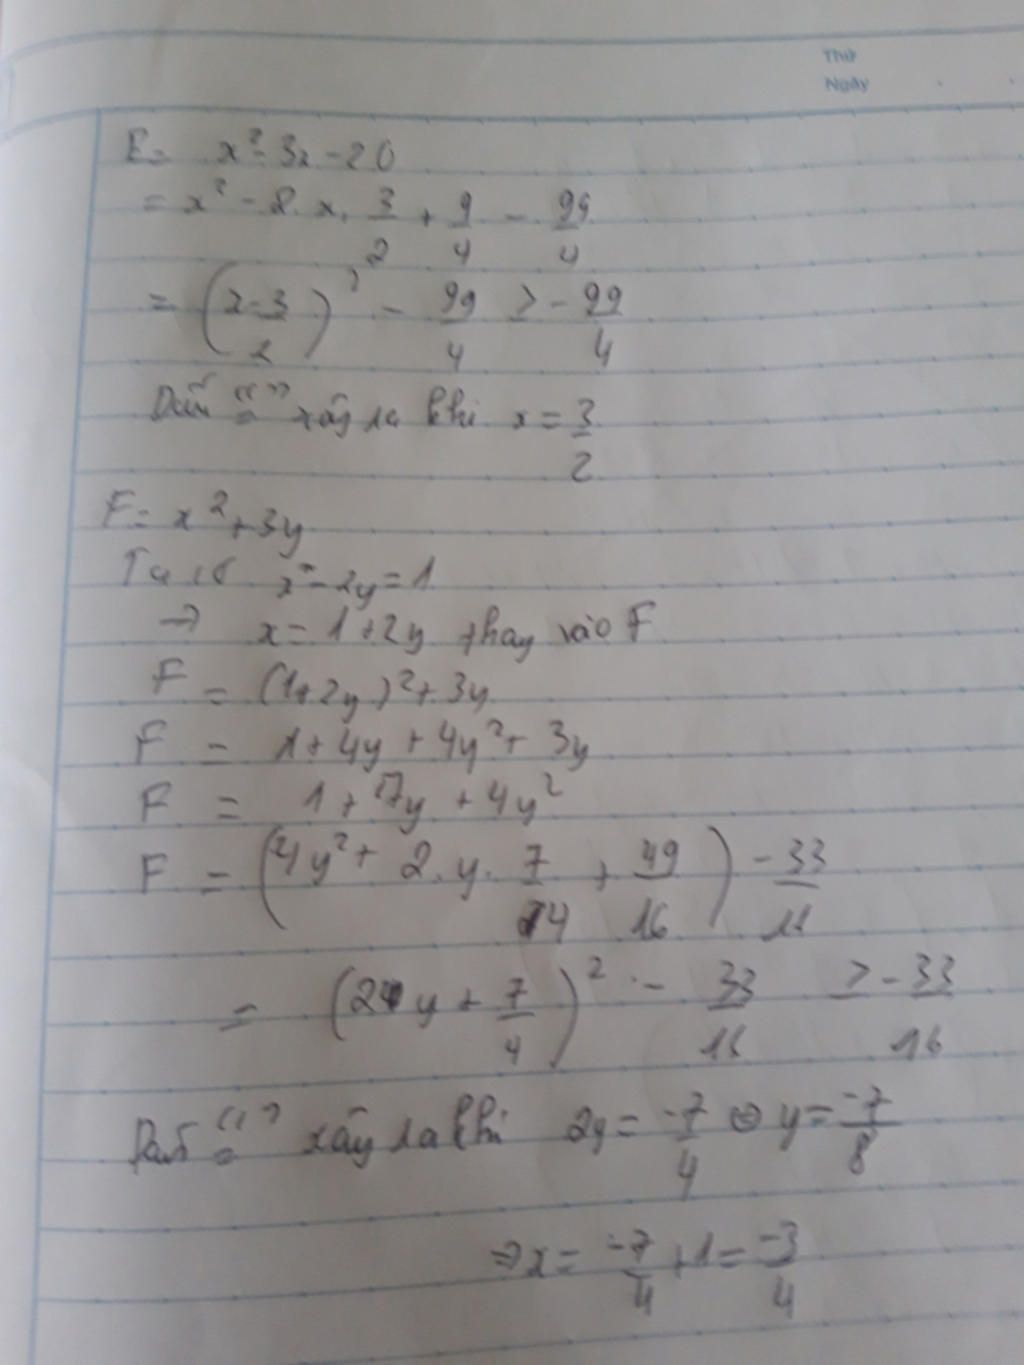 Thứ
Ngày
E = x² - 3x - 20
= x² - 2. x. 3/2 + 9/4 - 99/4
= (x - 3/2)² - 99/4 ≥ - 99/4
Dấu "=" xảy ra khi x = 3/2
F = x² + 3y
Ta có x - 2y = 1
→ x = 1 + 2y thay vào F
F = (1 + 2y)² + 3y
F = 1 + 4y + 4y² + 3y
F = 1 + 7y + 4y²
F = (4y² + 2. y. 7/4 + 49/16) - 33/16
= (2y + 7/4)² - 33/16 ≥ - 33/16
Dấu "=" xảy ra khi 2y = -7/4 ⇔ y = -7/8
⇒ x = -7/4 + 1 = -3/4